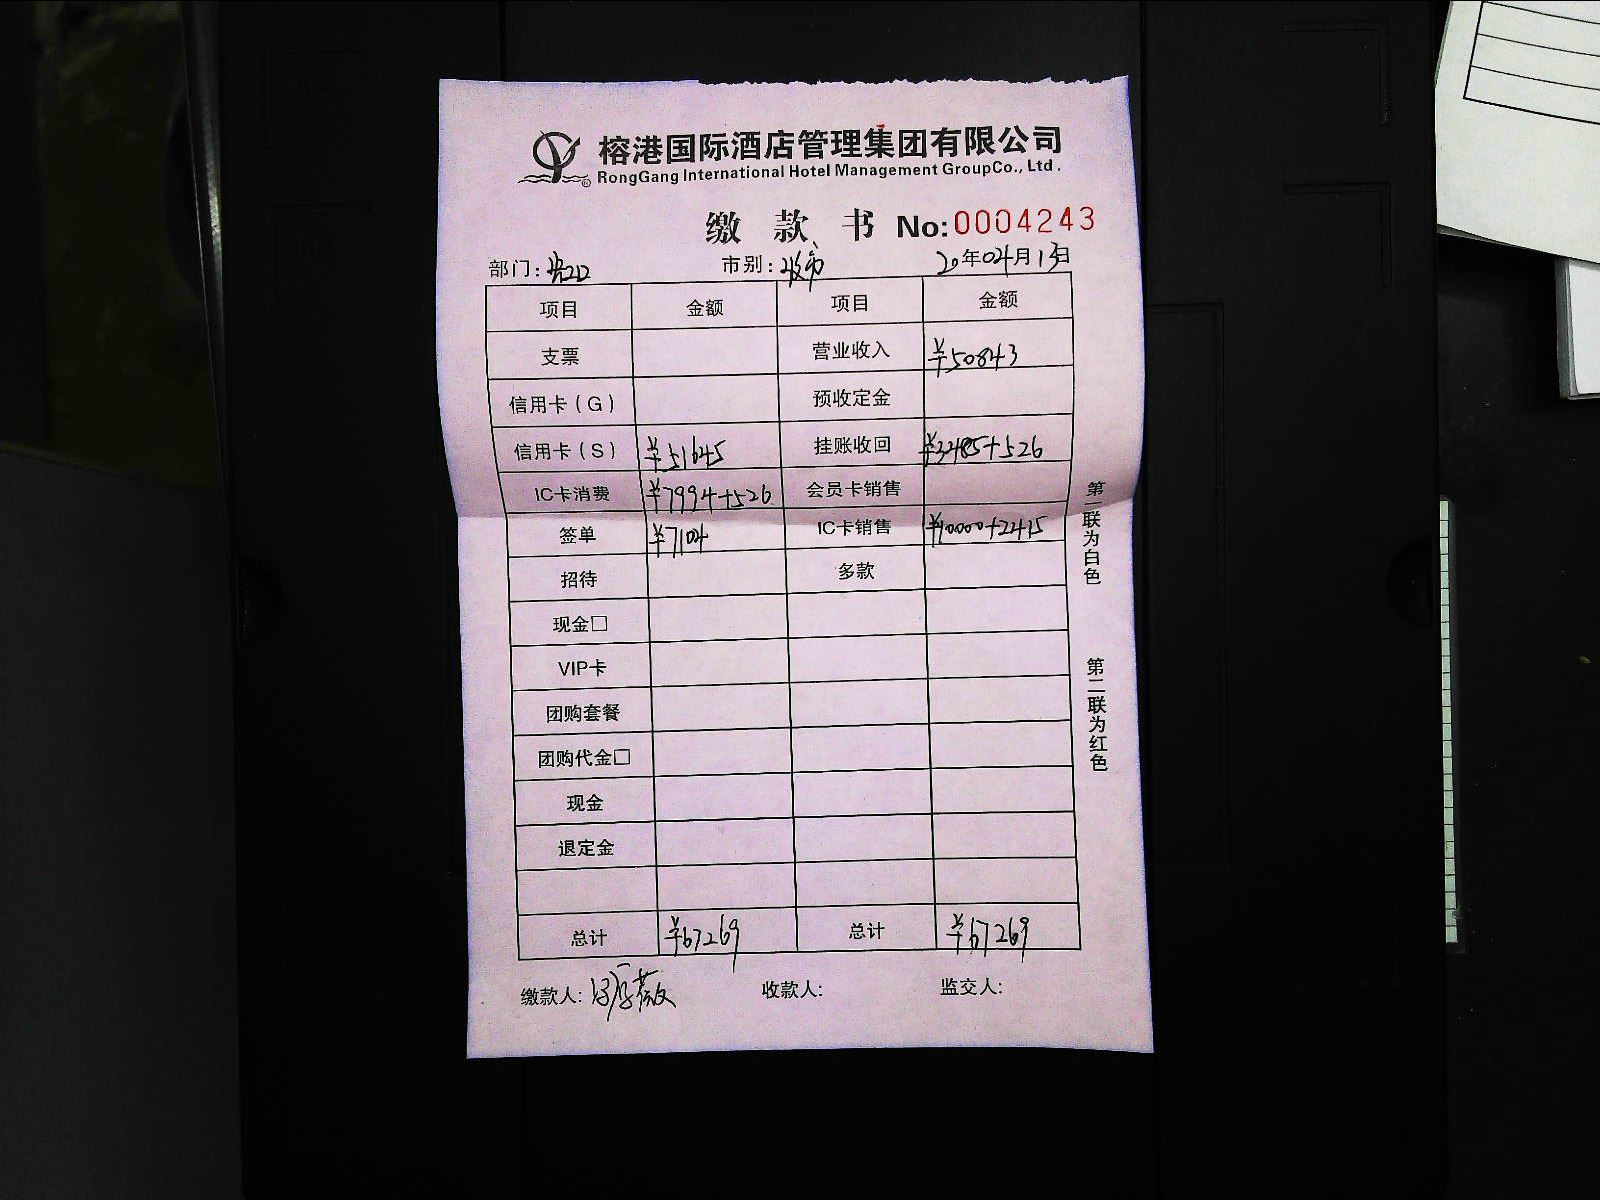 榕港国际酒店管理集团有限公司
RongGang International Hotel Management GroupCo., Ltd.
缴款书 No:0004243
部门: 市别:夜市 20年04月13日
项目 金额 项目 金额
支票 营业收入 ¥50843
信用卡(G) 预收定金
信用卡(S) ¥51645 挂账收回 ¥3485+526
IC卡消费 ¥7994+526 会员卡销售
签单 ¥7104 IC卡销售 ¥10000+2415
招待 多款
现金□
VIP卡
团购套餐
团购代金□
现金
退定金
总计 ¥67269 总计 ¥67269
缴款人: 收款人: 监交人:
第一联为白色
第二联为红色